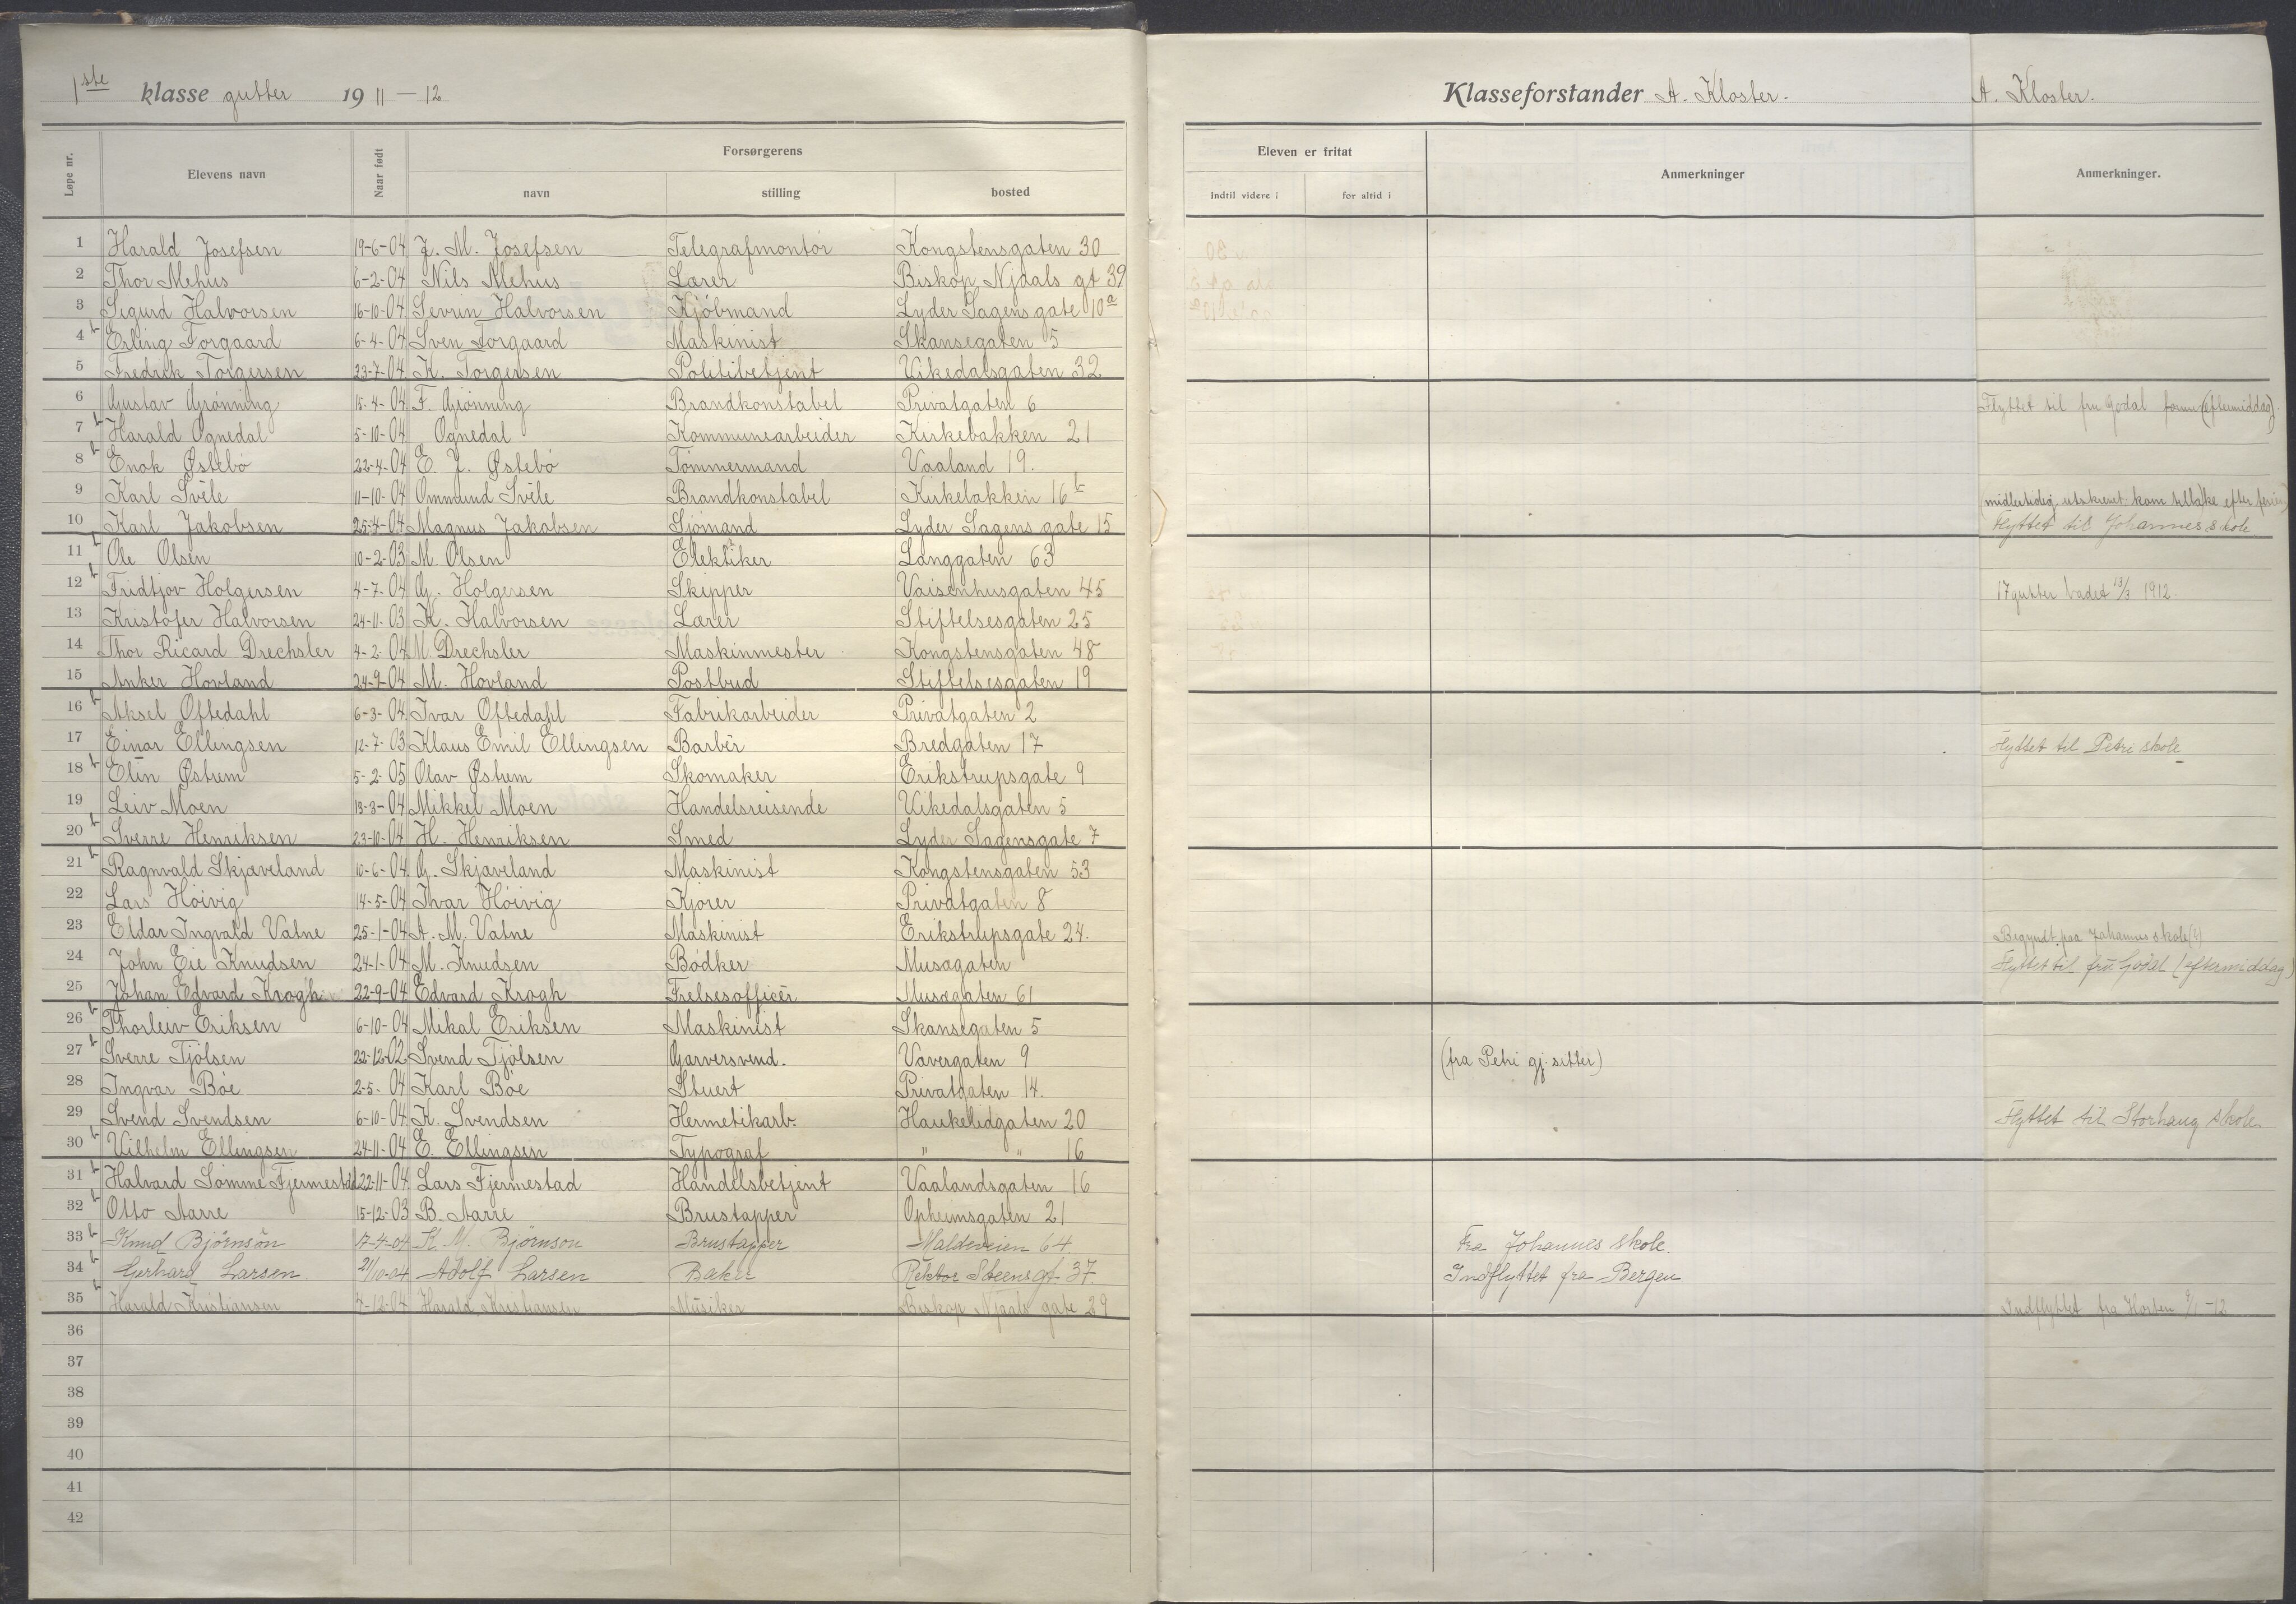 1ste klasse gutter 1911-12
Klasseforstander A. Kloster.
A. Kloster.
Løpe nr. Elevens navn Naar født Forsørgerens navn stilling bosted
Eleven er fritat indtil videre i for altid i Anmerkninger Anmerkninger.
1 Harald Josefsen 19-6-04 J. M. Josefsen Telegrafmontör Kongstensgaten 30
2 Thor Mehus 6-2-04 Nils Mehus Lærer Biskop Njaals gt 39
3 Sigurd Halvorsen 16-10-04 Sevrin Halvorsen Kjöbmand Lyder Sagens gate 10a
4 Erling Torgaard 6-4-04 Sven Torgaard Maskinist Skansegaten 5
5 Fredrik Torgersen 23-7-04 K. Torgersen Politibetjent Vikedalsgaten 32
6 Gustav Grönning 15-4-04 F. Grönning Brandkonstabel Privatgaten 6 Flyttet til fru Godal (eftermiddag).
7 Harald Ognedal 5-10-04 Ognedal Kommunearbeider Kirkebakken 21
8 Enok Østebö 22-4-04 E. J. Østebö Tömmermand Vaaland 19.
9 Karl Svèle 11-10-04 Ommund Svèle Brandkonstabel Kirkebakken 16b midlertidig utskrevet kom tilbake efter ferien
10 Karl Jakobsen 25-4-04 Magnus Jakobsen Sjömand Lyder Sagens gate 15 Flyttet til Johannes skole
11 Ole Olsen 10-2-03 M. Olsen Elektiker Langgaten 63
12 Fridtjov Holgersen 4-7-04 G. Holgersen Skipper Vaisenhusgaten 45 17 gutter badet 13/3 1912.
13 Kristofer Halvorsen 24-11-03 K. Halvorsen Lærer Stiftelsesgaten 25
14 Thor Ricard Drechsler 4-2-04 M. Drechsler Maskinmester Kongstensgaten 48
15 Anker Hovland 24-9-04 M. Hovland Postbud Stiftelsesgaten 19
16 Aksel Oftedahl 6-3-04 Ivar Oftedahl Fabrikarbeider Privatgaten 2
17 Einar Ellingsen 12-7-03 Klaus Emil Ellingsen Barbér Bredgaten 17 Flyttet til Petri skole
18 Elin Østrem 5-2-05 Olav Østrem Skomaker Erikstrupsgate 9
19 Leiv Moen 13-3-04 Mikkel Moen Handelsreisende Vikedalsgaten 5
20 Sverre Henriksen 23-10-04 H. Henriksen Smed Lyder Sagensgate 7
21 Ragnvald Skjæveland 10-6-04 G. Skjæveland Maskinist Kongstensgaten 53
22 Lars Höivig 14-5-04 Ivar Höivig Kjörer Privatgaten 8
23 Eldar Ingvald Vatne 25-1-04 A. M. Vatne Maskinist Erikstrupsgate 24. Begyndt paa Johannes skole
24 John Eie Knudsen 24-1-04 M. Knudsen Bödker Musægaten Flyttet til fru Godal (eftermiddag)
25 Johan Edvard Krogh 22-9-04 Edvard Krogh Frelsesofficèr Musægaten 61
26 Thorleiv Eriksen 6-10-04 Mikal Eriksen Maskinist Skansegaten 5
27 Sverre Tjölsen 22-12-02 Svend Tjölsen Garversvend. Vævergaten 9 (fra Petri gj. sitter)
28 Ingvar Böe 2-5-04 Karl Böe Stuert Privatgaten 14.
29 Svend Svendsen 6-10-04 K. Svendsen Hermetikarb. Haukelidgaten 20 Flyttet til Storhaug skole.
30 Vilhelm Ellingsen 24-11-04 E. Ellingsen Typograf " " 16
31 Halvard Sömme Fjermestad 22-11-04 Lars Fjermestad Handelsbetjent Vaalandsgaten 16
32 Otto Aarre 15-12-03 B. Aarre Brustapper Opheimsgaten 21
33 Knud Björnson 17-4-04 K. M. Björnson Brustapper Maldeveien 64. Fra Johannes skole.
34 Gerhard Larsen 21/10-04 Adolf Larsen Baker Rektor Steens gt 37. Indflyttet fra Bergen
35 Harald Kristiansen 7-12-04 Harald Kristiansen Musiker Biskop Njaals gate 29 Indflyttet fra Horten 9/1-12
36
37
38
39
40
41
42